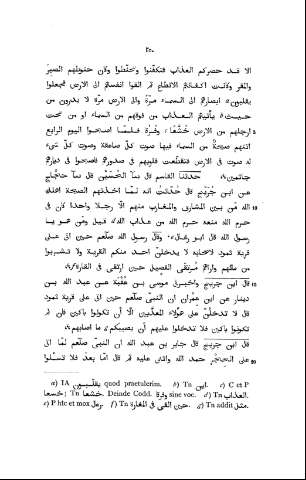 ٢٥٠
الا قد حضركم العذاب فتكفّنوا وتحنّطوا وكان حنوطهم الصبر
والمقر وكانت اكفانهم الانطاع ثم القوا انفسهم الى الارض فجعلوا
يقلّبون ابصارهم الى السماء مرّة والى الارض مرّة لا يدرون من
حيث يأتيهم العذاب من فوقهم من السماء او من تحت
ارجلهم من الارض خُشّعا وفُرقا فلمّا اصبحوا اليوم الرابع
اتتهم صيحة من السماء فيها صوت كلّ صاعقة وصوت كلّ شىء
له صوت فى الارض فتقطّعت قلوبهم فى صدورهم فاصبحوا فى ديارهم
جاثمين ٥ حدثنا القاسم قال سا الحُسَيْن قال سا حجّاج
عن ابن جُرَيْج قال حُدّثت انه لما اخذتهم الصيحة اهلك
10 الله من بين المشارق والمغارب منهم الا رجلا واحدا كان فى
حرم الله منعه حرم الله من عذاب الله قيل ومن هو يا
رسول الله قال ابو رغال وقال رسول الله صلّعم حين اتى على
قرية ثمود لاصحابه لا يدخلنّ احد منكم القرية ولا تشربوا
من مائهم واراهم مُرتقَى الفصيل حين ارتقى فى القارة
15 قال ابن جُرَيْج واخبرنى موسى بن عُقْبة عن عبد الله بن
دينار عن ابن عمران ان النبىّ صلّعم حين اتى على قرية ثمود
قال لا تدخلنّ على هؤلاء المعذّبين الّا أن تكونوا باكين فان لم
تكونوا باكين فلا تدخلوا عليهم أن يصيبكم ما اصابهم ٥
قال ابن جُرَيْج قال جابر بن عبد الله ان النبىّ صلّعم لمّا اتى
20 على الحِجْر حمد الله واثنى عليه ثم قال امّا بعد فلا تسـلوا
a) IA يقلّبون quod praetulerim. b) Tn اين. c) C et P
العذاب. d) Tn خشعا. Deinde Codd. وفرقا sine voc. Tn خسعا;
e) P hic et mox رعل. f) Tn حين القى فى المغارة. g) Tn addit مثل.